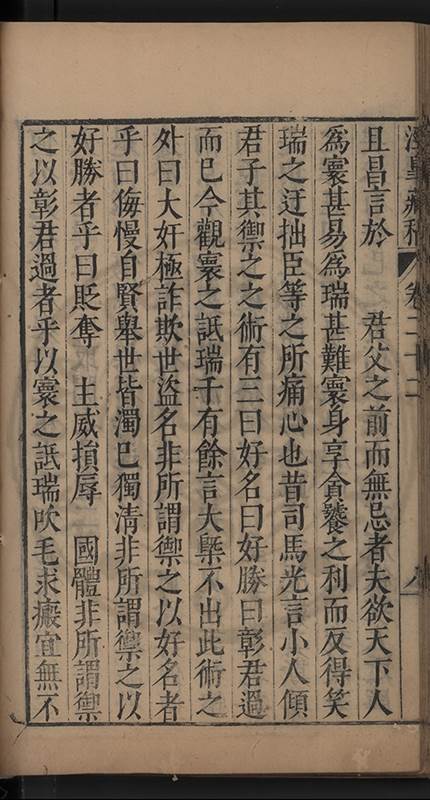 涇臯藏稿　卷二十二
且昌言於　君父之前而無忌者夫欲天下人
爲寰甚易爲瑞甚難寰身享貪饕之利而反得笑
瑞之迂拙臣等之所痛心也昔司馬光言小人傾
君子其禦之之術有三曰好名曰好勝曰彰君過
而已今觀寰之詆瑞千有餘言大槩不出此術之
外曰大奸極詐欺世盜名非所謂禦之以好名者
乎曰侮慢自賢舉世皆濁已獨清非所謂禦之以
好勝者乎曰貶奪　主威損辱　國體非所謂禦
之以彰君過者乎以寰之詆瑞吹毛求癜宜無不